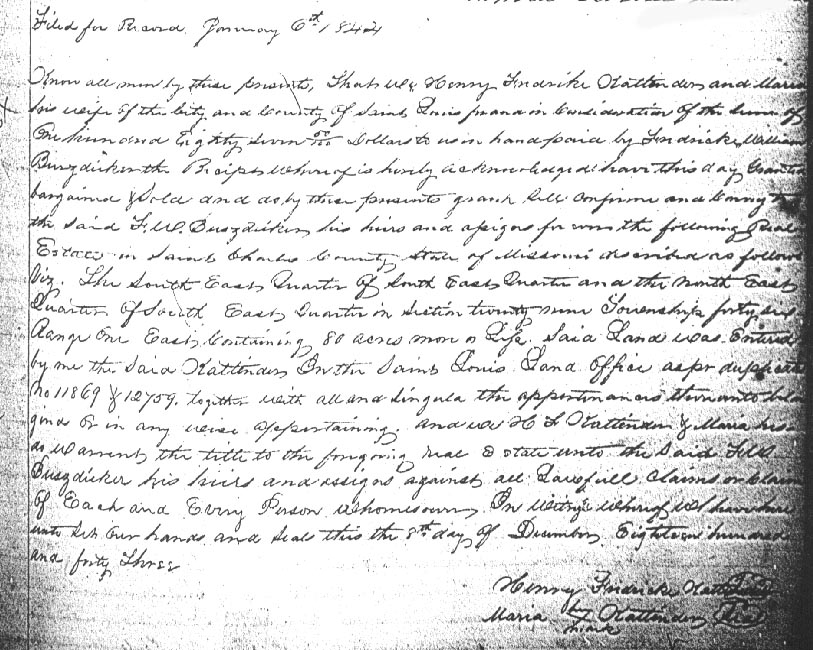 Filed for Record January 6th 1844
Know all men by these presents, That We Henry Fredrike Kattenders and Maria
his wife of the City and County of Saint Louis for and in Consideration of the Sum of
One hundred Eighty Seven 00/100 Dollars to us in hand paid by Fredrick William
Buszdicker the Recipt Whereof is hereby acknowledged have this day Granted
bargained & Sold and do by these presents grant Sell Confirm and Convey to
the said F.W. Buszdicker his hiers and assigns forever the following Real
Estate in Saint Charles County State of Missouri described as follows
Viz. The South East Quarter of South East Quarter and the North East
Quarter of South East Quarter in Section twenty nine Township forty six
Range One East, Containing 80 acres more or Less. Said Land was Entered
by me the Said Kattenders in the Saint Louis Land Office as pr duplicate
No 11869 & 12759. together with all and Singula the appertinances thereunto belo
ging or in any wise appertaining. and we H F Kattenders & Maria his
do warrent the title to the foregoing real Estate unto the Said F.W.
Buszdicker his hiers and assigns against all Lawfull Claims or Claim
of Each and Every Person whomsoever In Witness Whereof We have here
unto Set Our hands and Seals this the 8th day of December Eighteen hundred
and forty Three
Henry Fredrike Seal
Maria her Kattenders Seal
mark